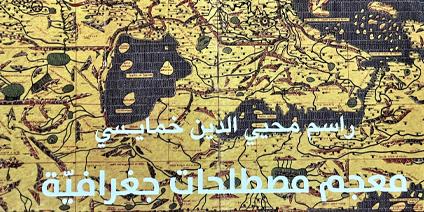 راسم محيي الدين خمايسي
معجم مصطلحات جغرافيّة